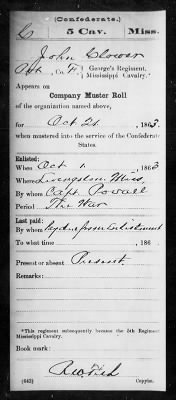 (Confederate.)
C 5 Cav. Miss.
John Clower
Pvt, Co. F, George's Regiment,
Mississippi Cavalry.*
Appears on
Company Muster Roll
of the organization named above,
for Oct 21, 1863.
when mustered into the service of the Confederate
States.
Enlisted:
When Oct 1, 1863
Where Livingston, Miss.
By whom Capt. Powell
Period The War
Last paid:
By whom hasn't from Enlistment
To what time , 186
Present or absent Present
Remarks:
*This regiment subsequently became the 5th Regiment
Mississippi Cavalry.
Book mark:
(642) Copyist.